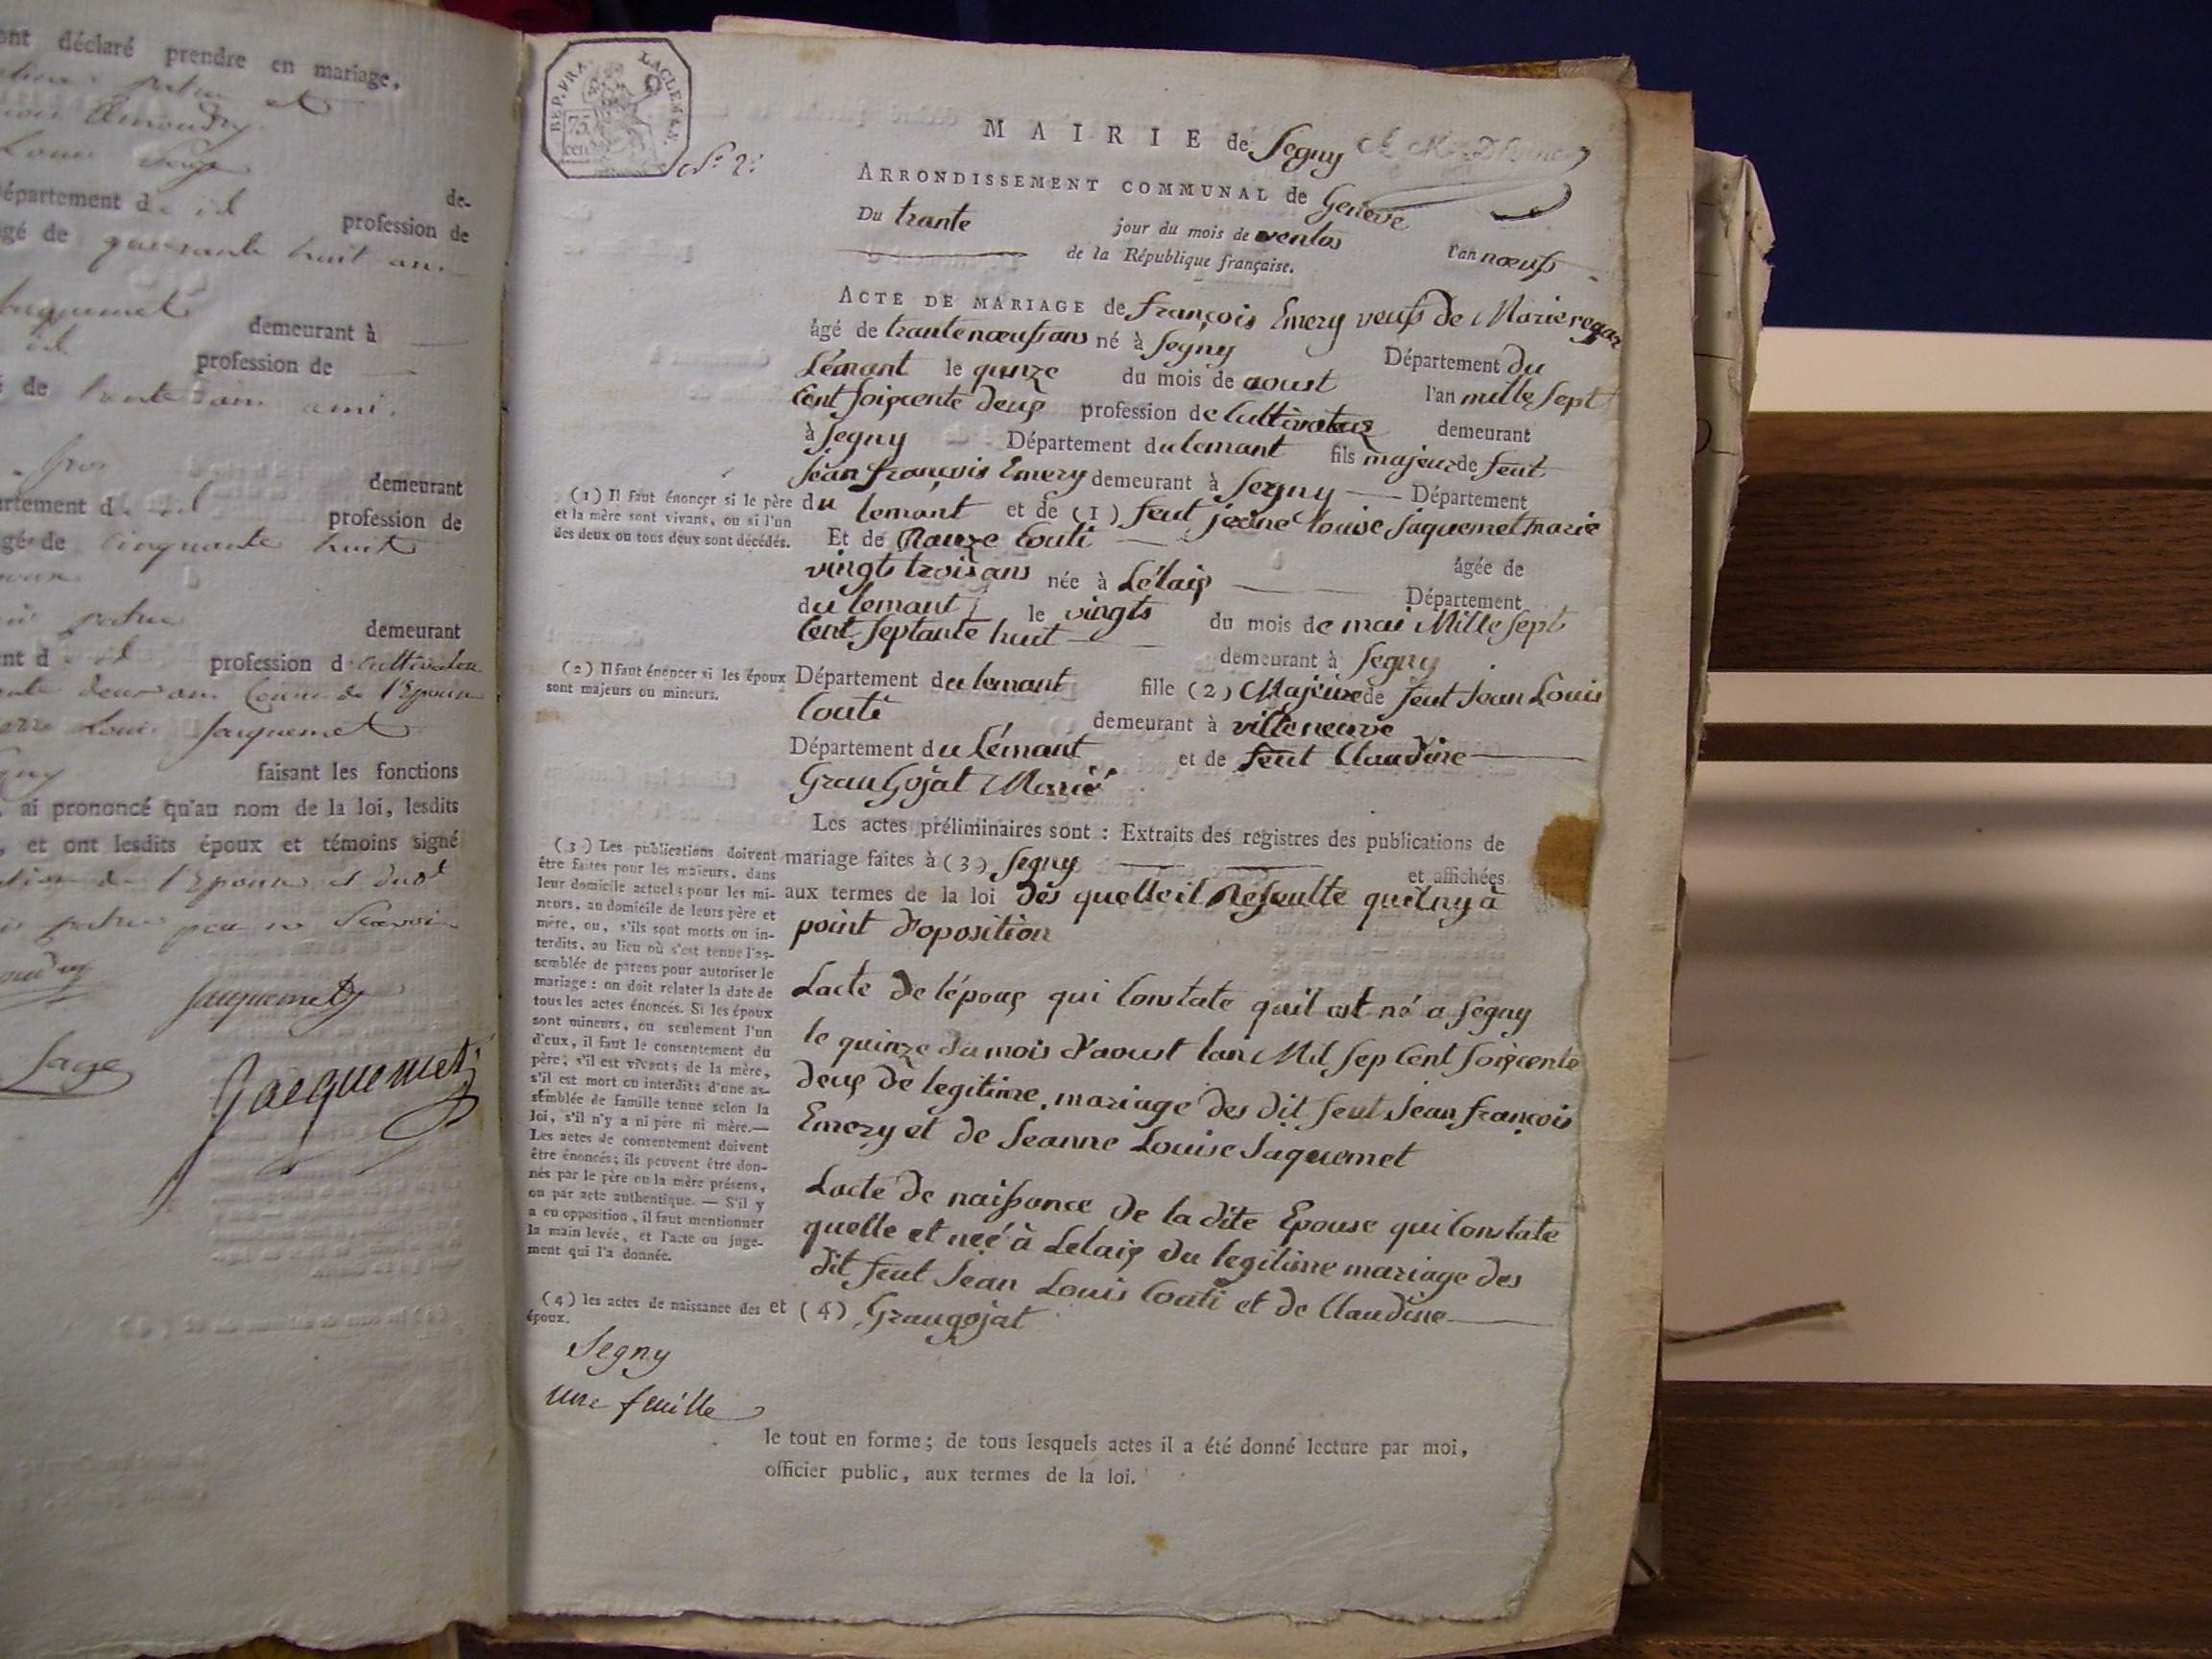 ont déclaré prendre en mariage,
et
Louis Sage
département d id de-
profession de
agé de quarante huit ans
Jaquemet demeurant à
id profession de
de trente ans ami.
demeurant
département d id profession de
agé de cinquante huit
demeurant
ent d id profession d cultivateur
deux ans Cousin de l'Epouse
Louis Jaquemet
faisant les fonctions
ai prononcé qu'au nom de la loi, lesdits
, et ont lesdits époux et témoins signé
de l'Epouse et dud
pour ne Scavoir
Jaquemet
Sage
Jacquemet
REP. FRA.
75.
cen.
N° 2.
MAIRIE de Segny
ARRONDISSEMENT COMMUNAL de Geneve
Du trante jour du mois de ventos l'an nœuf
de la République française.
ACTE DE MARIAGE de françois Emery veuf de Marie
âgé de trante nœuf ans né à Segny Département du
Lémant le quinze du mois de aoust l'an mille sept
Cent soixcente deux profession de Cultivateur demeurant
à Segny Département du lemant fils majeur de feut
Jean françois Emery demeurant à Segny Département
(1) Il faut énoncer si le père
et la mère sont vivans, ou si l'un
des deux ou tous deux sont décédés.
du lemant et de (1) feut jeane Louise Jaquemet marie
Et de Couti âgée de
vingts trois ans née à Lélaix Département
du lemant le vingts du mois de mai Mille sept
Cent septante huit demeurant à Segny
(2) Il faut énoncer si les époux
sont majeurs ou mineurs.
Département du lemant fille (2) Majeure de feut Jean Louis
Couti demeurant à villeneuve
Département du Lémant et de feut Claudine
GrauGojat Marié
Les actes préliminaires sont : Extraits des registres des publications de
mariage faites à (3) Segny et affichées
aux termes de la loi dès quelle il Resulte quil ny à
point d'oposition
(3) Les publications doivent
être faites pour les majeurs, dans
leur domicile actuel; pour les mi-
neurs, au domicile de leurs père et
mère, ou, s'ils sont morts ou in-
terdits, au lieu où s'est tenue l'as-
semblée de parens pour autoriser le
mariage : on doit relater la date de
tous les actes énoncés. Si les époux
sont mineurs, ou seulement l'un
d'eux, il faut le consentement du
père, s'il est vivant; de la mère,
s'il est mort ou interdit; d'une as-
semblée de famille tenue selon la
loi, s'il n'y a ni père ni mère.—
Les actes de consentement doivent
être énoncés; ils peuvent être don-
nés par le père ou la mère présens,
ou par acte authentique. — S'il y
a eu opposition, il faut mentionner
la main levée, et l'acte ou juge-
ment qui l'a donnée.
Lacte de l'époux qui Constate quil est né a Segny
le quinze du mois d'aoust lan Mil sep Cent soixcente
deux de legitime mariage des dit feut Jean françois
Emery et de Jeanne Louise Jaquemet
Lacte de naissance de la dite Epouse qui Constate
quelle et neé à Lelaix du legitime mariage des
dit feut Jean Louis Couti et de Claudine
(4) les actes de naissance des
époux.
et (4) Graugojat
Segny
une feuille
le tout en forme; de tous lesquels actes il a été donné lecture par moi,
officier public, aux termes de la loi.